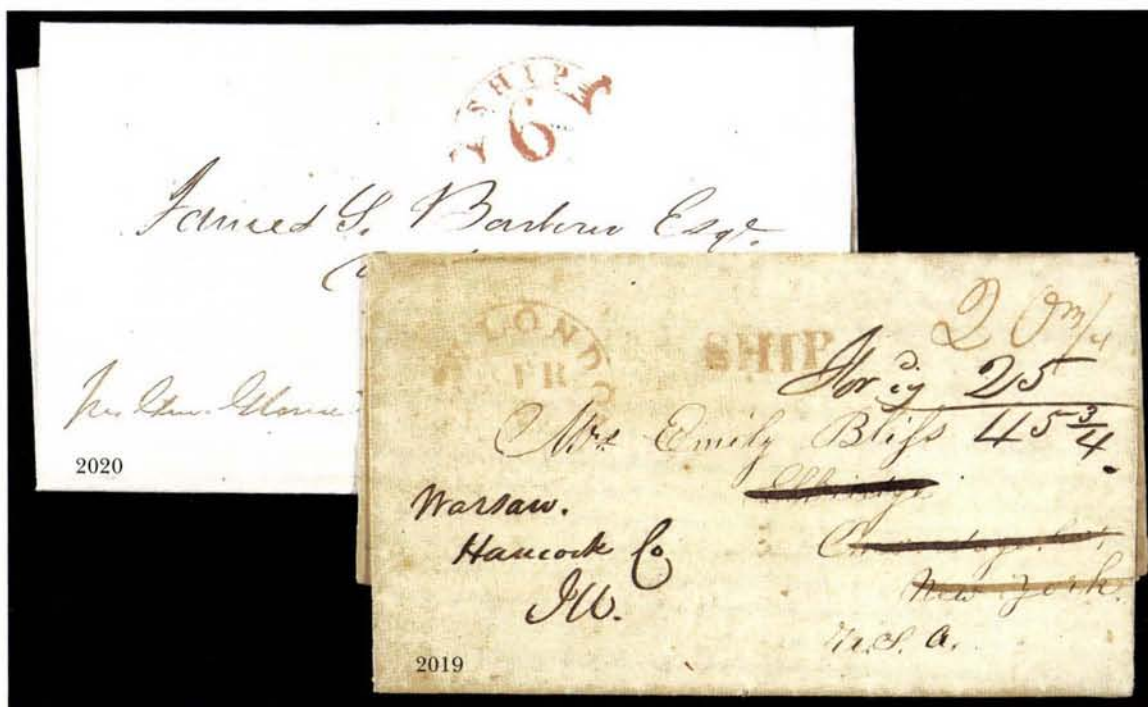 SHIP
6
James S. Barbour Esqr.
2020
LOND
SHIP
20¾
Forᵈ 25
45¾
Mrs Emily Bliss
Elbridge
New York
U.S.A.
Warsaw.
Hancock Co
Ill.
2019